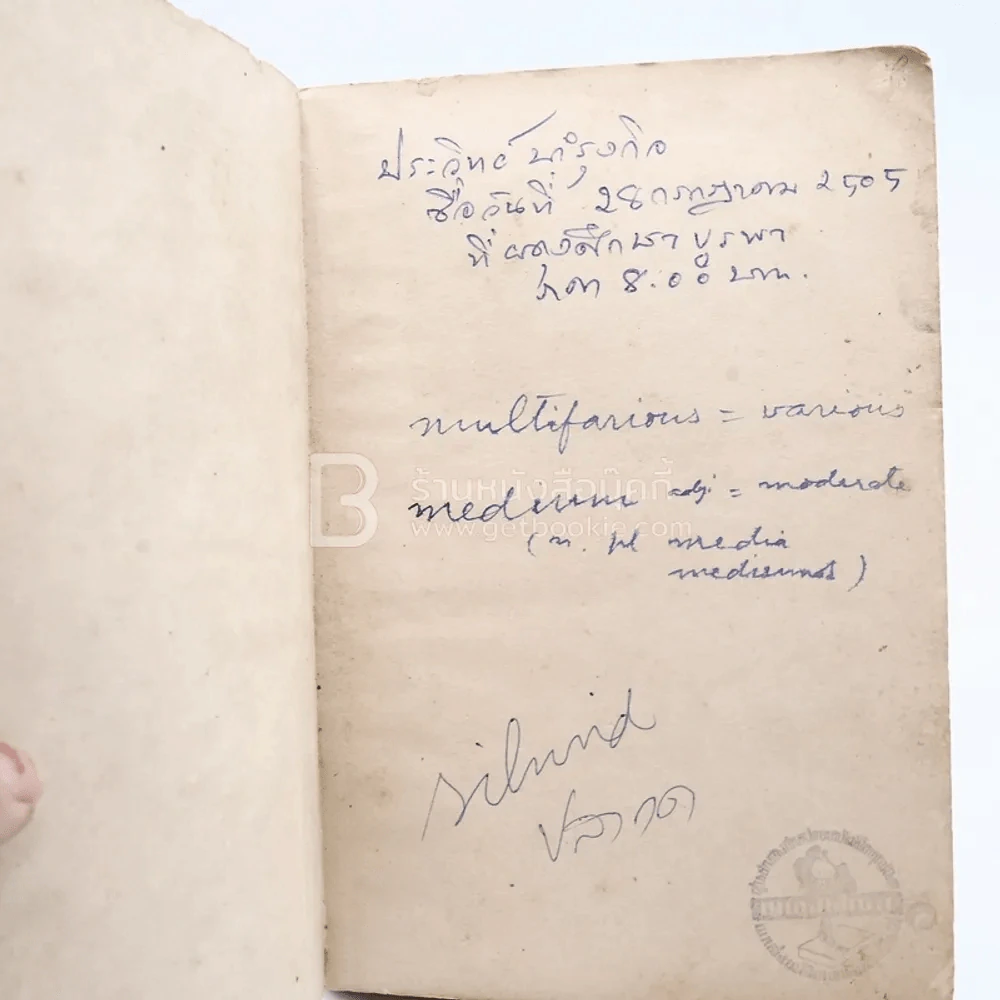 ประวิทย์ บำรุงกิจ
ซื่อวันที่ 28 กรกฎาคม 2505
ที่ ผดุงศึกษา บูรพา
ราคา 8.00 บาท.
multifarious = various
ร้านหนังสือบุ๊คกี้
medium adj = moderate
www.getbookie.com
(n. pl media
mediums)
ปลากด